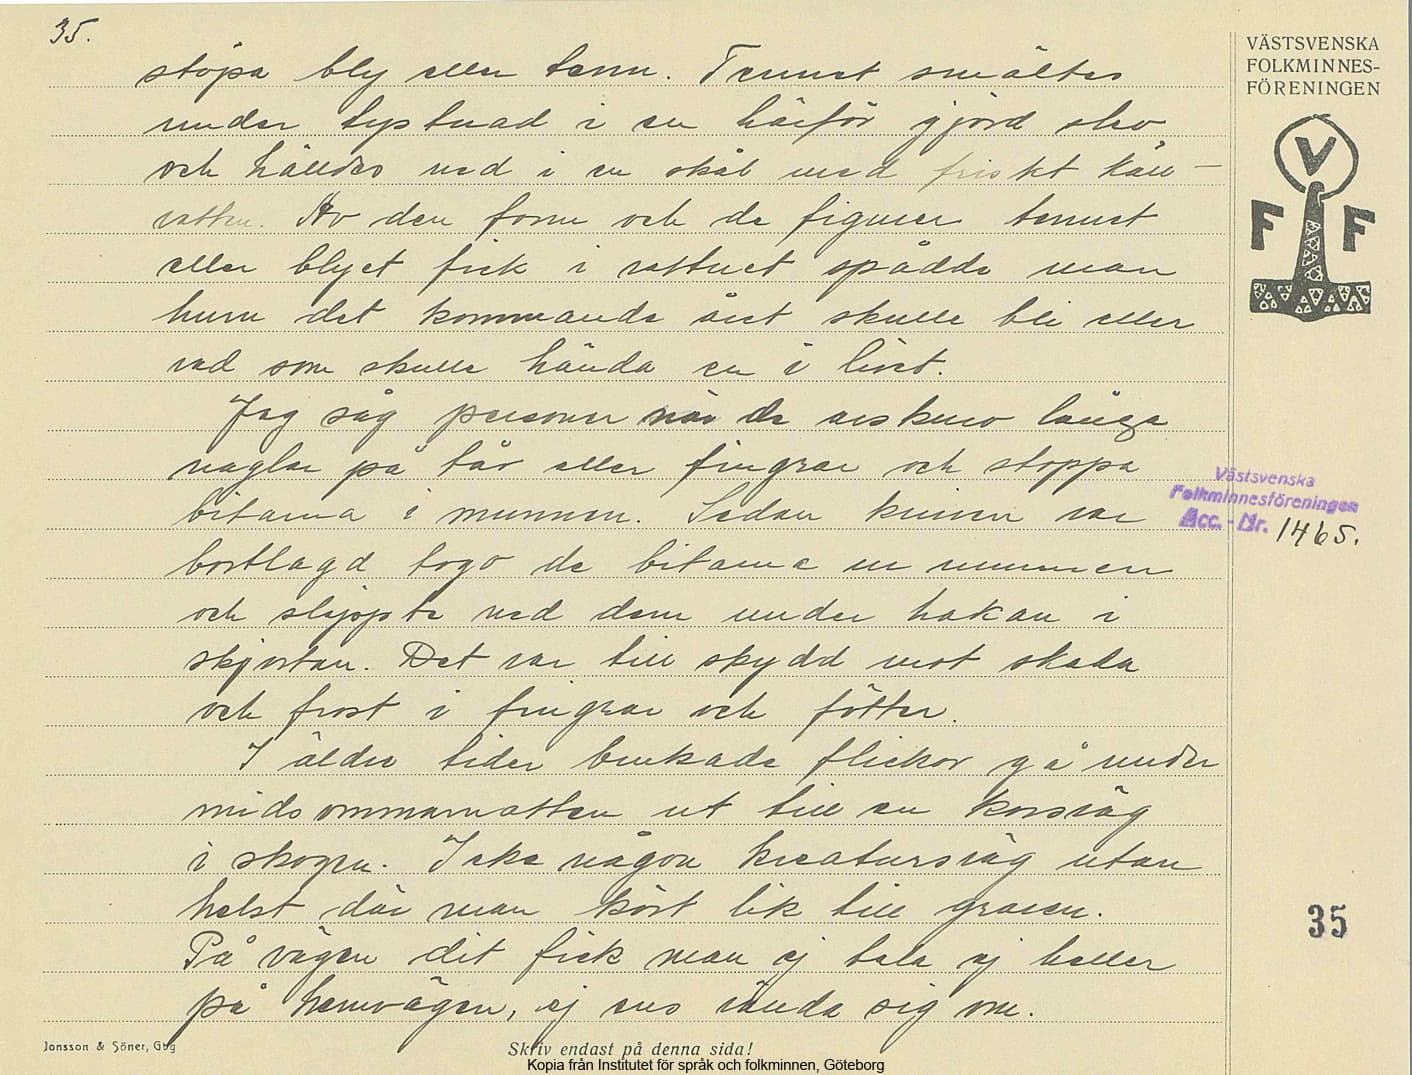 35.
stöpa bly eller tenn. Tennet smältes
under tystnad i en härför gjord slev
och hälldes ned i en skål med friskt käll-
vatten. Av den form och de figurer tennet
eller blyet fick i vattnet spådde man
huru det kommande året skulle bli eller
vad som skulle hända en i livet.
Jag såg personer när de avskuro långa
naglar på tår eller fingrar och stoppa
bitarna i munnen. Sedan kniven var
bortlagd togo de bitarna ur munnen
och släppte ned dem under hakan i
skjortan. Det var till skydd mot skada
och frost i fingrar och fötter.
I äldre tider brukade flickor gå under
midsommarnatten ut till en korsväg
i skogen. Icke någon kreatursväg utan
helst där man kört lik till graven.
På vägen dit fick man ej tala ej heller
på hemvägen, ej ens vända sig om.
VÄSTSVENSKA
FOLKMINNES-
FÖRENINGEN
V
F F
Västsvenska
Folkminnesföreningen
Acc. - Nr. 1465.
35
Jonsson & Söner, Gbg
Skriv endast på denna sida!
Kopia från Institutet för språk och folkminnen, Göteborg